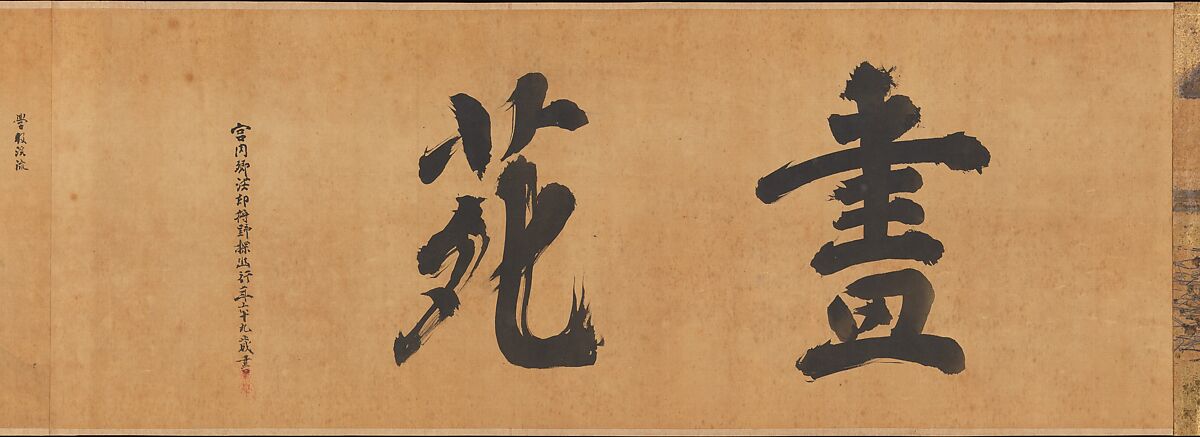 畫苑
宮内卿法印狩野探幽行年六十九歳畫
學牧渓流